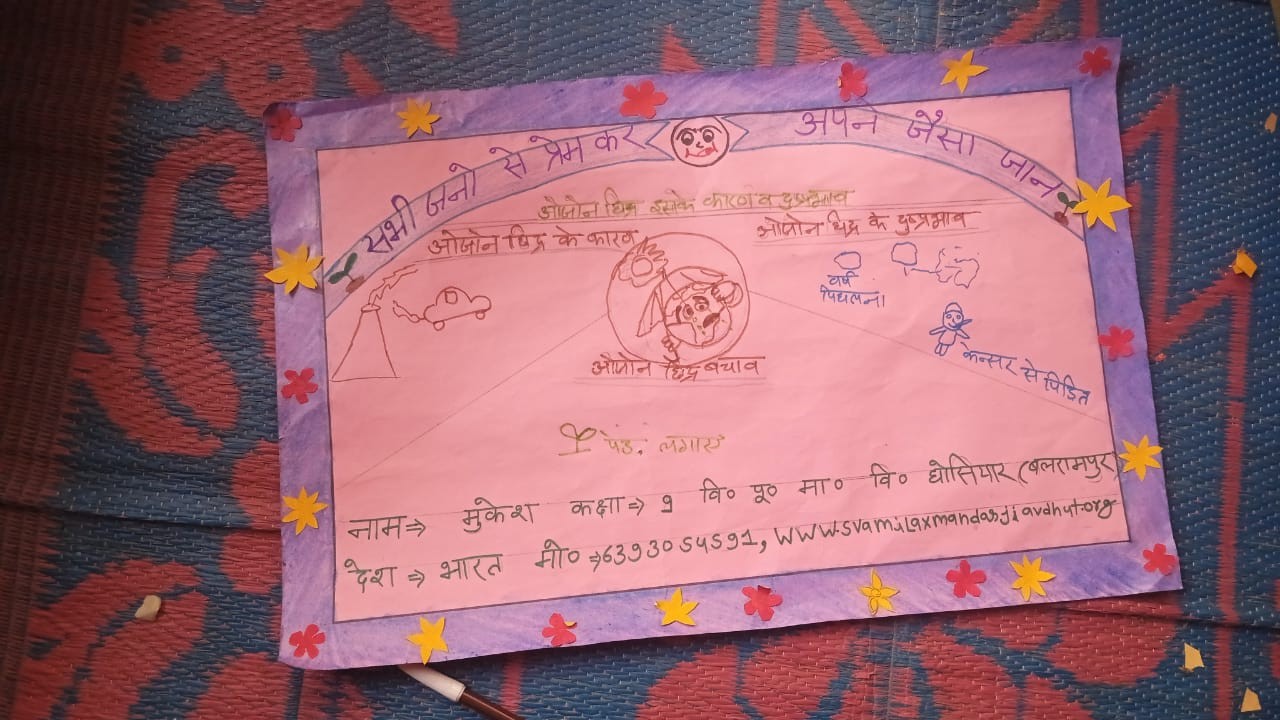 सभी जनो से प्रेम कर अपने जैसा जान
ओजोन छिद्र इसके कारण व दुष्प्रभाव
ओजोन छिद्र के कारण
ओजोन छिद्र के दुष्प्रभाव
वर्फ
पिघलना
केन्सर से पिडित
ओजोन छिद्र बचाव
पेड़ लगाएं
नाम ⇒ मुकेश कक्षा ⇒ 9 वि० पू० मा० वि० घोसियार (बलरामपुर)
देश ⇒ भारत मो० ⇒ 6393054591, www.svamilaxmandasjiavdhut.org